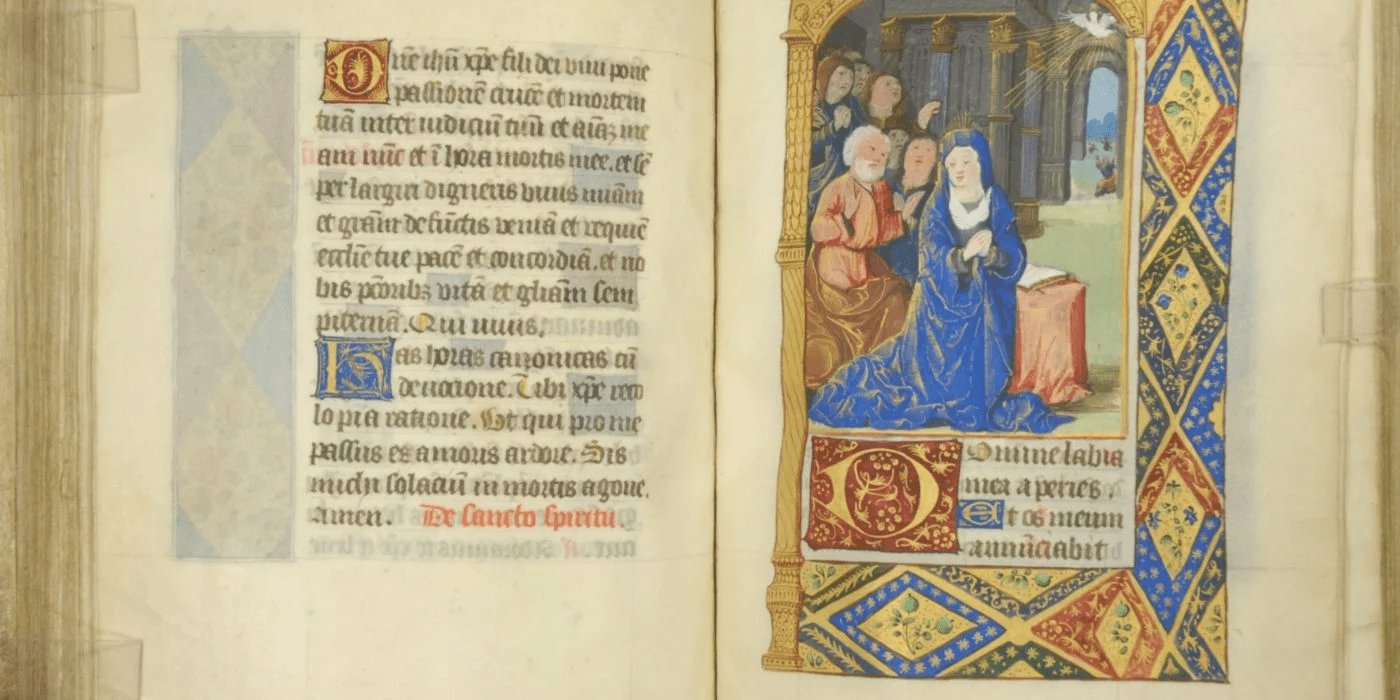 Dñe ihũ xp̃e fili dei viui pone
passionẽ crucẽ et mortem
tuã inter iudiciũ tuũ et aĩaz me
am nũc et ĩ hora mortis mee. et sẽ
per largiri digneris viuis miãm
et grãm defũctis veniã et requiẽ
ecclie tue pacẽ et concordiã. et no
bis pcõribꝫ vitã et gliãm sem
piternã. Qui viuis.
Has horas canonicas cũ
deuocione. Tibi xp̃e reco
lo pia ratione. Ut qui pro me
passus es amoris ardore. Sis
michi solaciũ in mortis agone.
Amen. De sancto spiritu.
Domine labia
mea aperies.
Et os meum
annũciabit